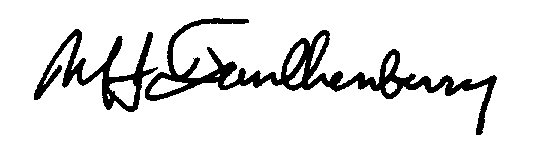 M H Faulkenberry